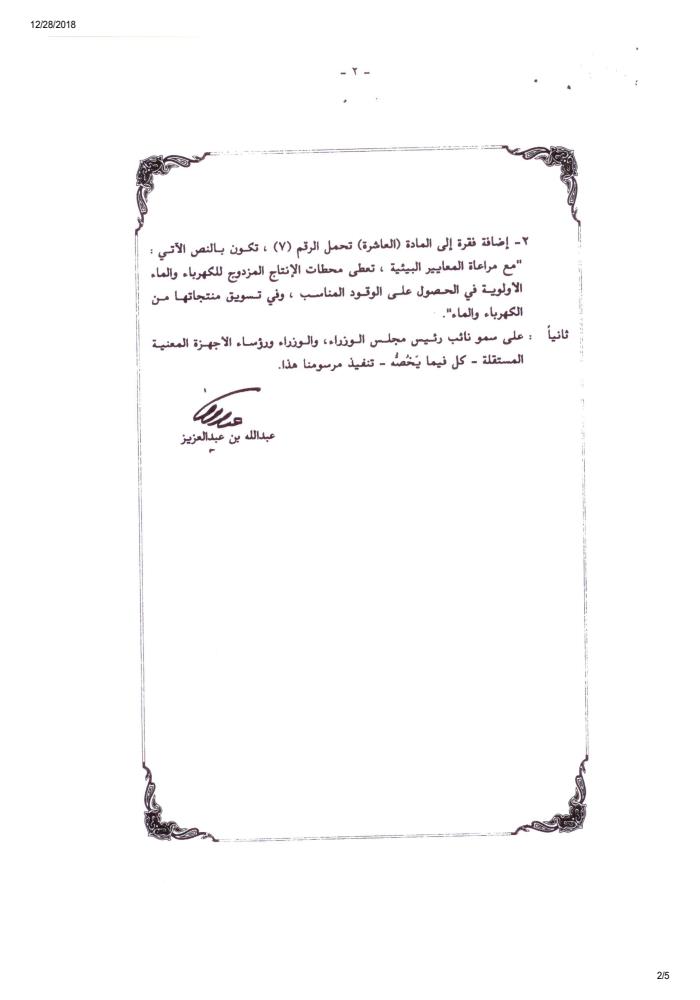 12/28/2018
- ٢ -
٢- إضافة فقرة إلى المادة (العاشرة) تحمل الرقم (٧) ، تكون بالنص الآتي :
"مع مراعاة المعايير البيئية ، تعطى محطات الإنتاج المزدوج للكهرباء والماء
الأولوية في الحصول على الوقود المناسب ، وفي تسويق منتجاتها من
الكهرباء والماء".
ثانياً : على سمو نائب رئيس مجلس الوزراء، والوزراء ورؤساء الأجهزة المعنية
المستقلة - كل فيما يَخُصُّه - تنفيذ مرسومنا هذا.
عبدالله بن عبدالعزيز
2/5